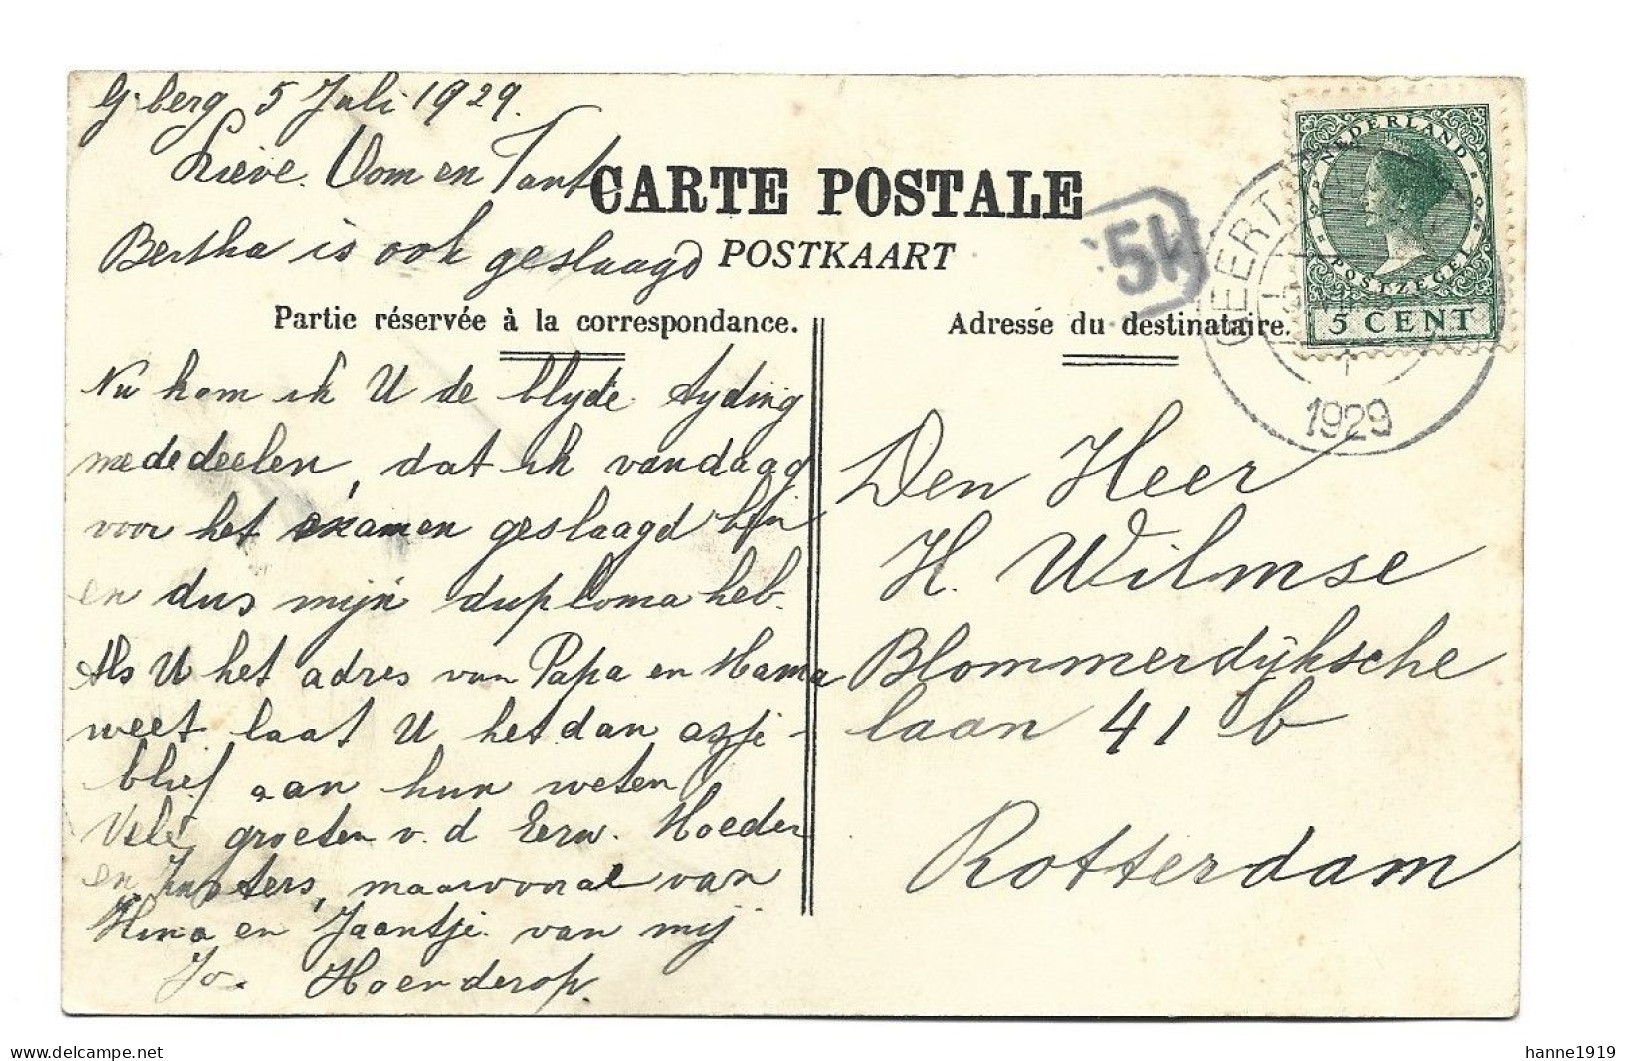 G.berg 5 Juli 1929.
Lieve Oom en Tante
CARTE POSTALE
Bertha is ook geslaagd
POSTKAART
Partie réservée à la correspondance.
Nu kom ik U de blijde tijding
mededeelen, dat ik vandaag
voor het examen geslaagd ben
en dus mijn diploma heb.
Als U het adres van Papa en Mama
weet laat U het dan asje-
blief aan hun weten
Vele groeten v. d. Eerw. Moeder
en Zusters, maarvooral van
Mina en Jaantje van mij
Jo. Hoenderop
51
Adresse du destinataire.
NEDERLAND
POSTZEGEL
5 CENT
GEERT
1929
Den Heer
H. Wilmse
Blommerdijksche
laan 41 b
Rotterdam
www.delcampe.net
hanne1919